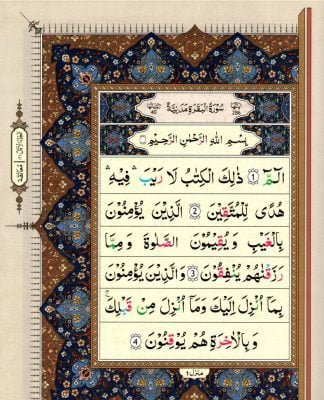 سُوْرَةُ الْبَقَرَةِ مَدَنِيَّةٌ
بِسْمِ اللّٰهِ الرَّحْمٰنِ الرَّحِيْمِ
الٓمّٓ ۚ ﴿1﴾ ذٰلِكَ الْكِتٰبُ لَا رَيْبَ ۛ فِيْهِ ۛ
هُدًى لِّلْمُتَّقِيْنَ ﴿2﴾ الَّذِيْنَ يُؤْمِنُوْنَ
بِالْغَيْبِ وَ يُقِيْمُوْنَ الصَّلٰوةَ وَ مِمَّا
رَزَقْنٰهُمْ يُنْفِقُوْنَ ﴿3﴾ وَالَّذِيْنَ يُؤْمِنُوْنَ
بِمَاۤ اُنْزِلَ اِلَيْكَ وَمَاۤ اُنْزِلَ مِنْ قَبْلِكَ ۚ
وَ بِالْاٰخِرَةِ هُمْ يُوْقِنُوْنَ ﴿4﴾
منزل ١